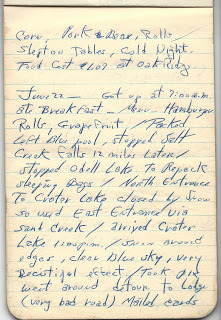 Corn, Pork & Bean, Rolls/
Slept on Tables, Cold Night.
Food Cost $1.09 at Oak Ridge.
June 22 – Got up at 7:00 a.m.
ate Breakfast – Menu Hamburger
Rolls, Grapefruit / Packed
Left blue pool, stopped Salt
Creek Falls 12 miles later/
stopped Odell Lake To Repack
sleeping Bags / North Entrance
To Crater Lake closed by snow
so used East Entrance via
sand Creek / arrived Crater
Lake 1:00 p.m. / snow around
edges, clear blue sky, very
Beautiful effect / Took
went around detour to Lodge
(very bad road) Maild cards